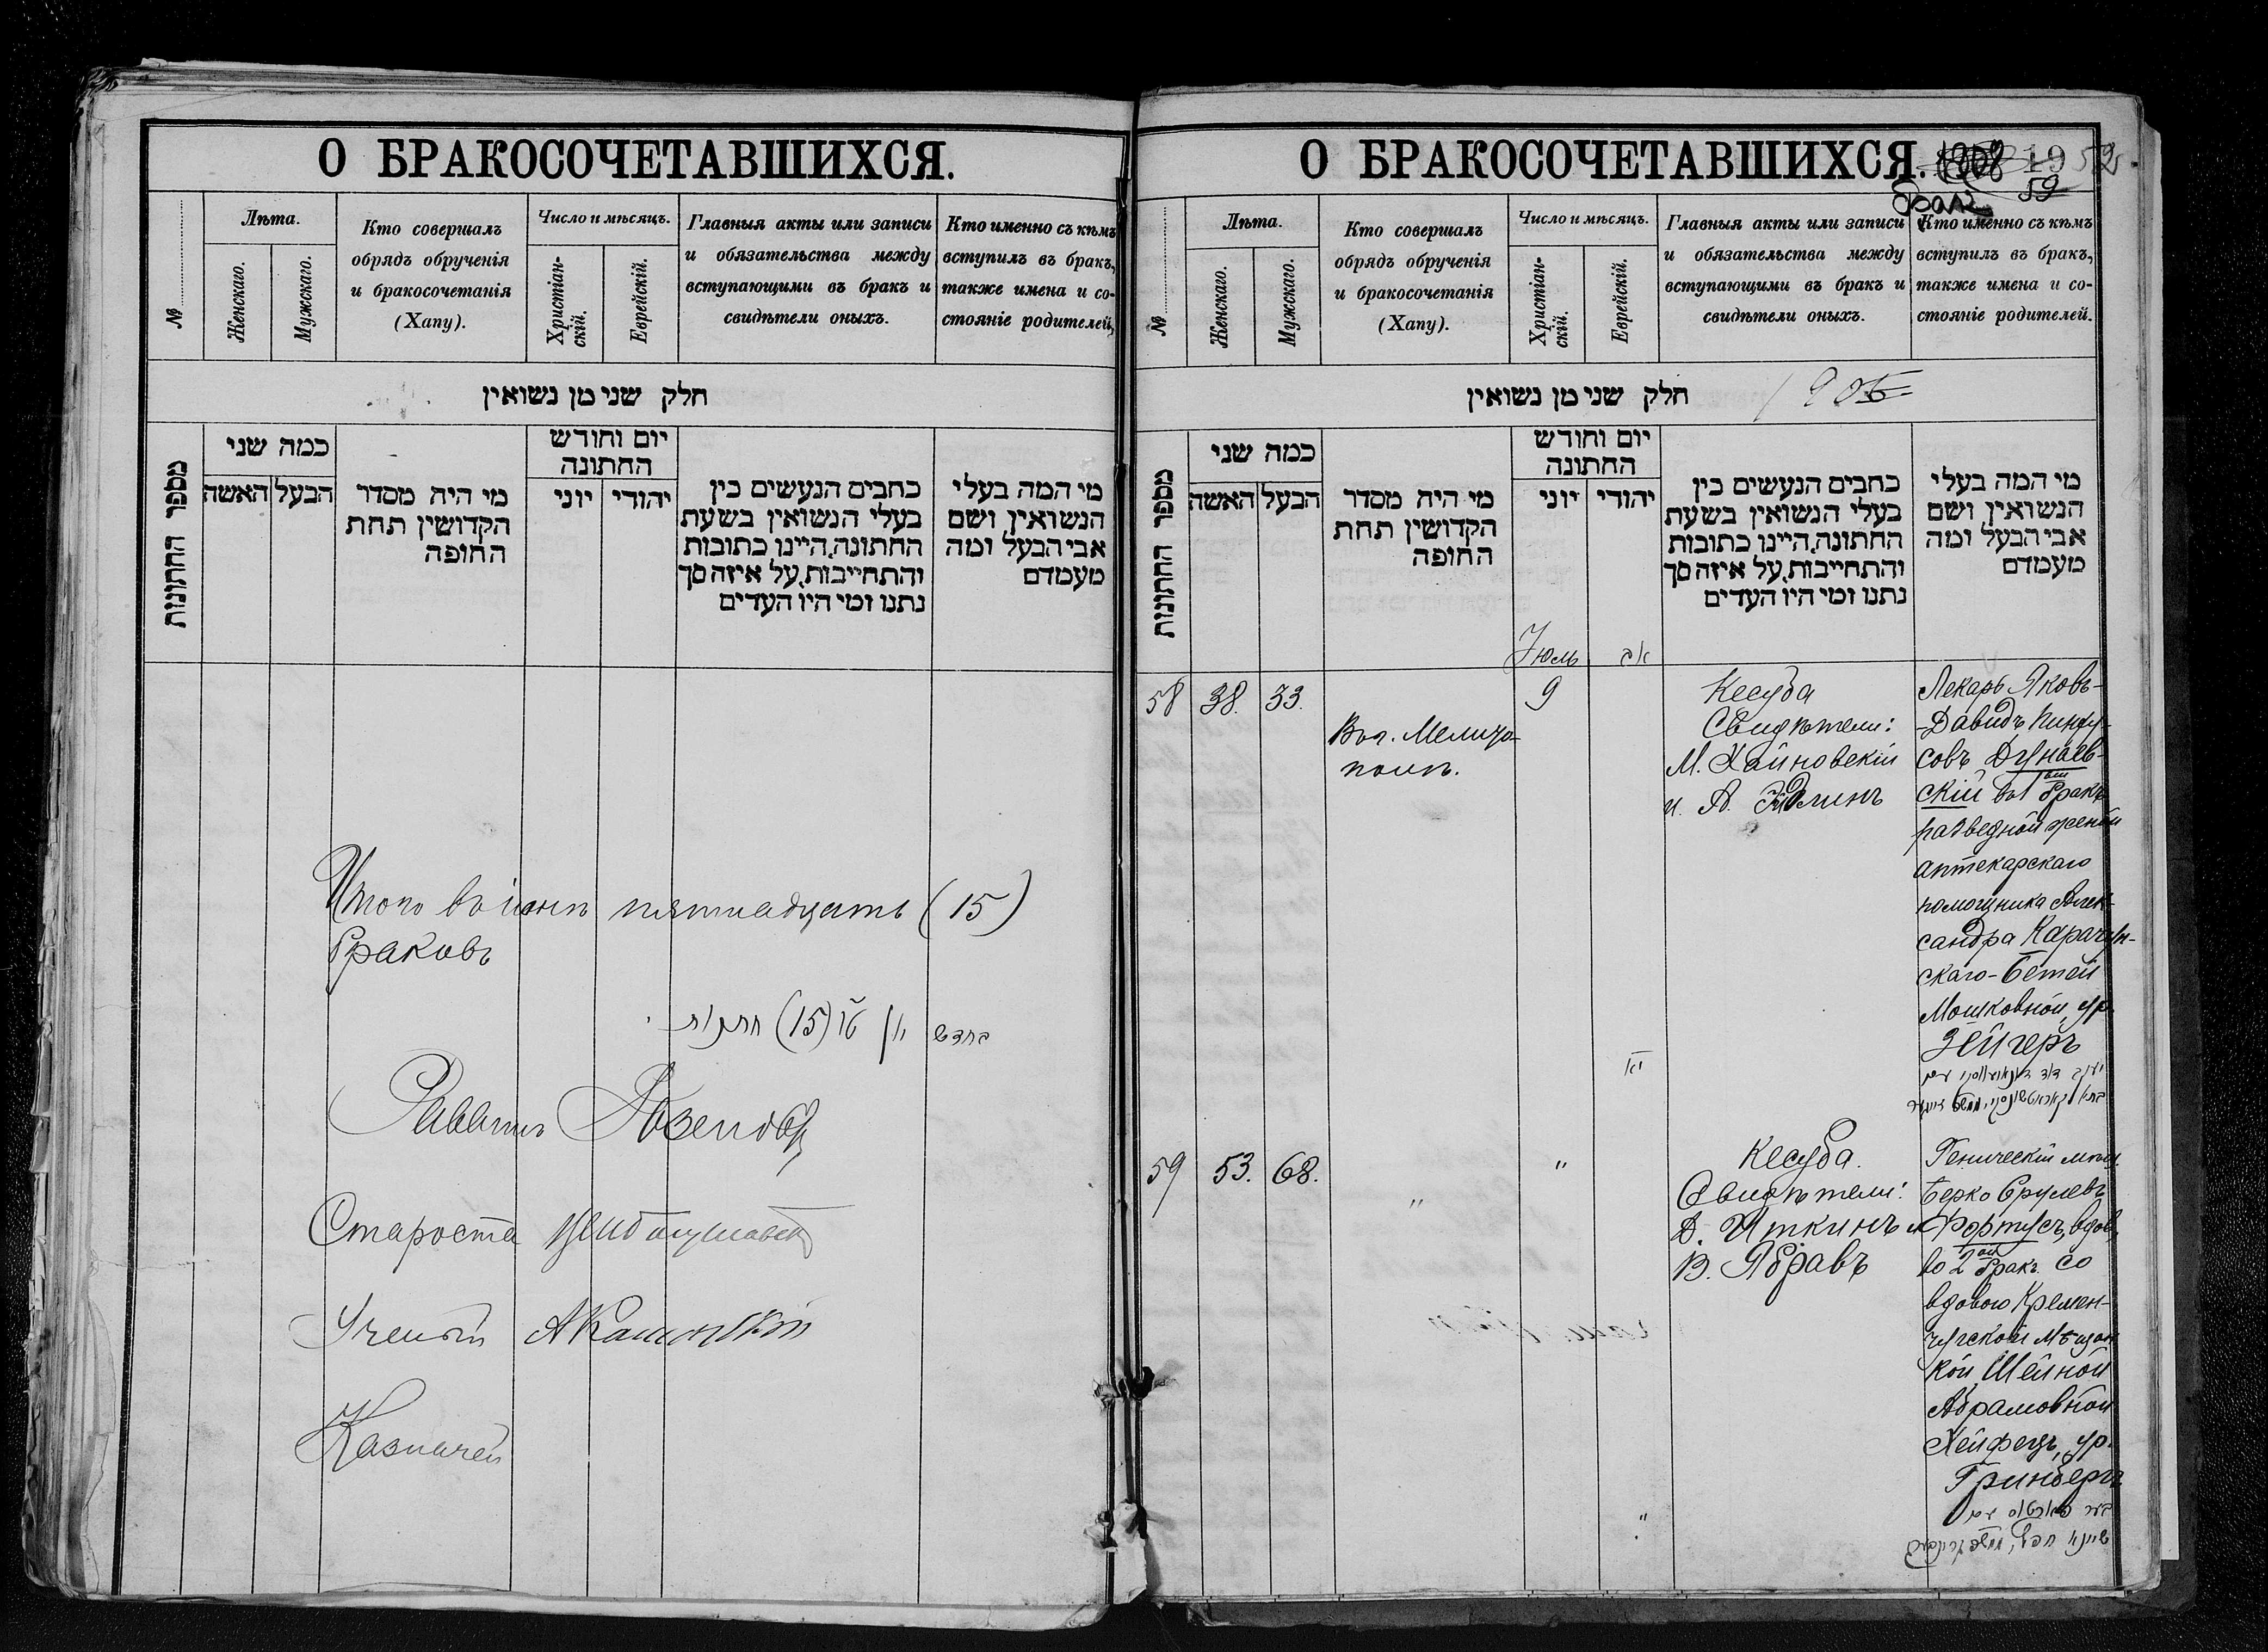 О БРАКОСОЧЕТАВШИХСЯ.
№
Лѣта.
Женскаго.
Мужскаго.
Кто совершалъ
обрядъ обрученія
и бракосочетанія
(Хапу).
Число и мѣсяцъ.
Христіан-
скій.
Еврейскій.
Главныя акты или записи
и обязательства между
вступающими въ бракъ и
свидѣтели оныхъ.
Кто именно съ кѣмъ
вступилъ въ бракъ,
также имена и со-
стояніе родителей,
חלק שני מן נשואין
מספר החתונות
כמה שני
האשה
הבעל
מי היה מסדר
הקדושין תחת
החופה
יום וחודש
החתונה
יוני
יהודי
כתבים הנעשים בין
בעלי הנשואין בשעת
החתונה, היינו כתובות
והתחייבות, על איזה סך
נתנו ומי היו העדים
מי המה בעלי
הנשואין ושם
אבי הבעל ומה
מעמדם
Итого въ іюнѣ пятнадцать (15)
браковъ
בחדש יון טו (15) חתונות
Раввинъ
Староста
Ученый
Казначей
О БРАКОСОЧЕТАВШИХСЯ.
1908 19 52
59
№
Лѣта.
Женскаго.
Мужскаго.
Кто совершалъ
обрядъ обрученія
и бракосочетанія
(Хапу).
Число и мѣсяцъ.
Христіан-
скій.
Еврейскій.
Главныя акты или записи
и обязательства между
вступающими въ бракъ и
свидѣтели оныхъ.
Кто именно съ кѣмъ
вступилъ въ бракъ,
также имена и со-
стояніе родителей.
חלק שני מן נשואין
מספר החתונות
כמה שני
האשה
הבעל
מי היה מסדר
הקדושין תחת
החופה
יום וחודש
החתונה
יוני
יהודי
כתבים הנעשים בין
בעלי הנשואין בשעת
החתונה, היינו כתובות
והתחייבות, על איזה סך
נתנו ומי היו העדים
מי המה בעלי
הנשואין ושם
אבי הבעל ומה
מעמדם
Іюль
אב
58
38.
33.
Въ г. Мелито-
полѣ.
9
יא
Кесуба
Свидѣтели:
М. Хайновскій
и А.
Лекарь Яковъ-
-Давидъ Пинху-
совъ Дунаев-
скій въ 1вый бракъ
разведной женой
аптекарскаго
помощника Алек-
сандра Карачун-
скаго - Бетей
Мошковной, ур.
Зейгеръ
יעקב דוד דונאיעווסקי עם
59
53.
68.
"
"
"
Кесуба.
Свидѣтели:
Д. Иткинъ и
В. Ябравъ
Геническій мѣщ.
Берко Срулевъ
Фортусъ, вдов.
во 2ой бракъ со
вдовою Кремен-
чугской мѣщан-
кой Шейной
Абрамовной
Хейфецъ, ур.
Гринбергъ